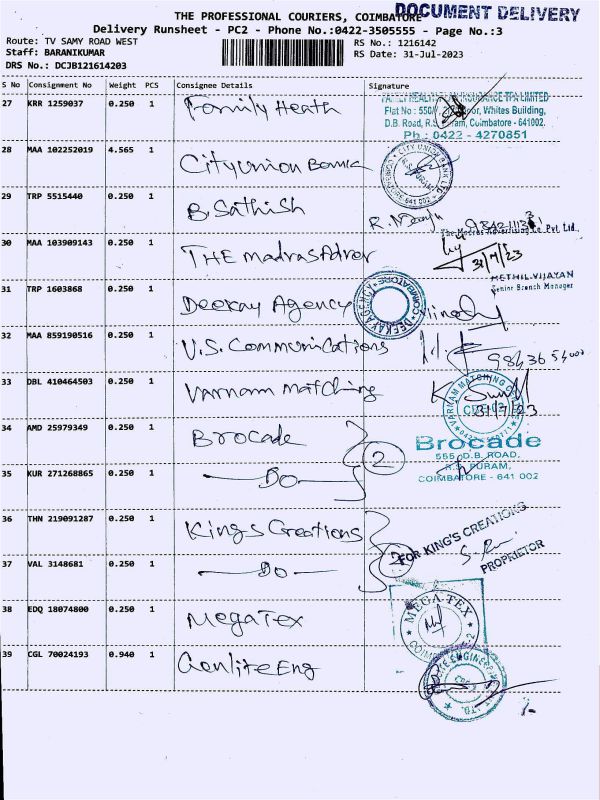 DOCUMENT DELIVERY
THE PROFESSIONAL COURIERS, COIMBATORE
Delivery Runsheet - PC2 - Phone No.:0422-3505555 - Page No.:3
Route: TV SAMY ROAD WEST
RS No.: 1216142
Staff: BARANIKUMAR
RS Date: 31-Jul-2023
DRS No.: DCJB121614203
S No Consignment No Weight PCS Consignee Details Signature
27 KRR 1259037 0.250 1 Family Heath
Flat No : 550/ Floor, Whites Building,
D.B. Road, R.S. Puram, Coimbatore - 641002.
Ph : 0422 - 4270851
28 MAA 102252019 4.565 1 City Union Bank
CITY UNION BANK LTD
COIMBATORE-641 002
29 TRP 5515440 0.250 1 B. Sathish
30 MAA 103909143 0.250 1 THE Madras Adver
The Madras Advertising Co. Pvt. Ltd.,
31/7/23
METHIL VIJAYAN
Senior Branch Manager
31 TRP 1603868 0.250 1 Deekay Agency
DEEKAY AGENCY COIMBATORE
32 MAA 859190516 0.250 1 V.S. Communications
33 DBL 410464503 0.250 1 Varnam Matching
VARNAM MATCHING
31/7/23
34 AMD 25979349 0.250 1 Brocade
2
Brocade
555, D.B. ROAD,
R.S. PURAM,
COIMBATORE - 641 002
35 KUR 271268865 0.250 1 — Do —
36 THN 219091287 0.250 1 Kings Creations
2
FOR KING'S CREATIONS
PROPRIETOR
37 VAL 3148681 0.250 1 — Do —
38 EDQ 18074800 0.250 1 Mega Tex
MEGA TEX
39 CGL 70024193 0.940 1